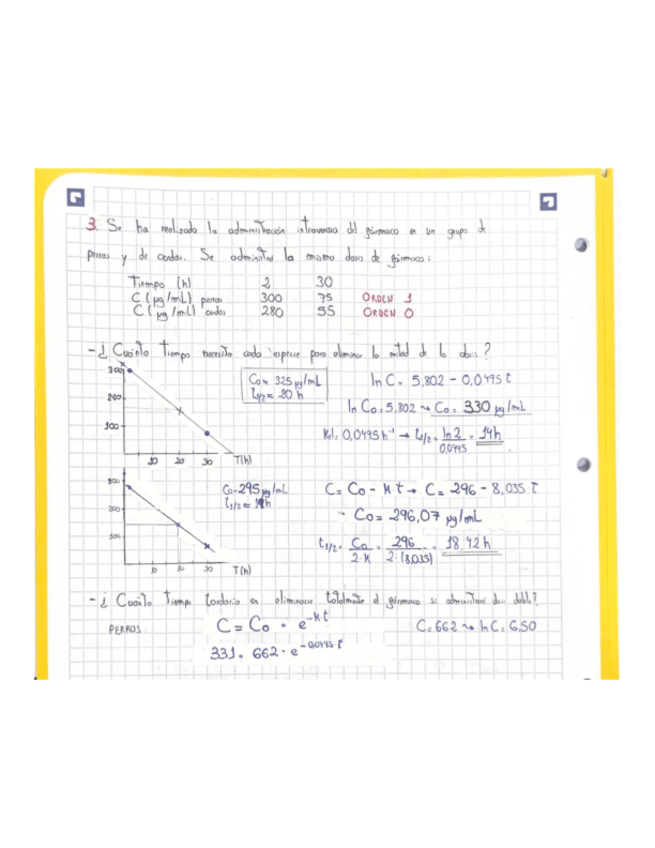 3. Se ha realizado la administración intravenosa del fármaco en un grupo de
perros y de cerdos. Se administró la misma dosis de fármaco:
Tiempo (h) 2 30
C (µg/mL) perros 300 75 ORDEN 1
C (µg/mL) cerdos 280 55 ORDEN 0
- ¿Cuánto tiempo necesita cada especie para eliminar la mitad de la dosis?
300
200
100
10 20 30 T(h)
C₀ = 325 µg/mL
t₁/₂ = 20 h
ln C = 5,802 - 0,0495 t
ln C₀ = 5,802 → C₀ = 330 µg/mL
Kel = 0,0495 h⁻¹ → t₁/₂ = ln 2 / 0,0495 = 14h
300
200
100
10 20 30 T(h)
C₀ = 295 µg/mL
C = C₀ - K·t → C = 296 - 8,035 t
C₀ = 296,07 µg/mL
t₁/₂ = C₀ / 2·K = 296 / 2·(8,035) = 18,42 h
- ¿Cuánto tiempo tardaría en eliminarse totalmente el fármaco si administré dosis doble?
PERROS: C = C₀ · e^-Kt C = 662 → ln C = 6,50
331 = 662 · e^-0,0495 t